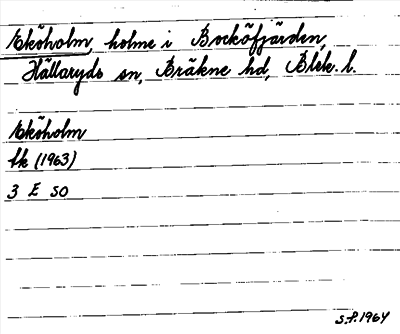 Eköholm, holme i Bocköfjärden,
Hällaryds sn, Bräkne hd, Blek. l.
Eköholm
Ek (1963)
3 E SO
S.P. 1964